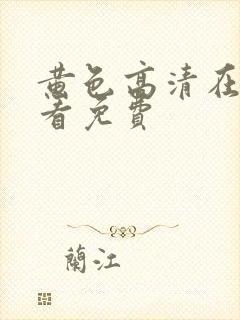 黄色高清在
看免费
蘭江